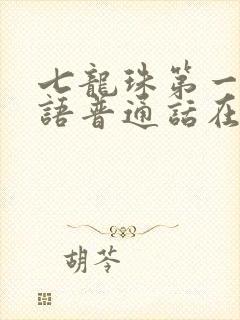 七龍珠第一
語普通話在
胡苓